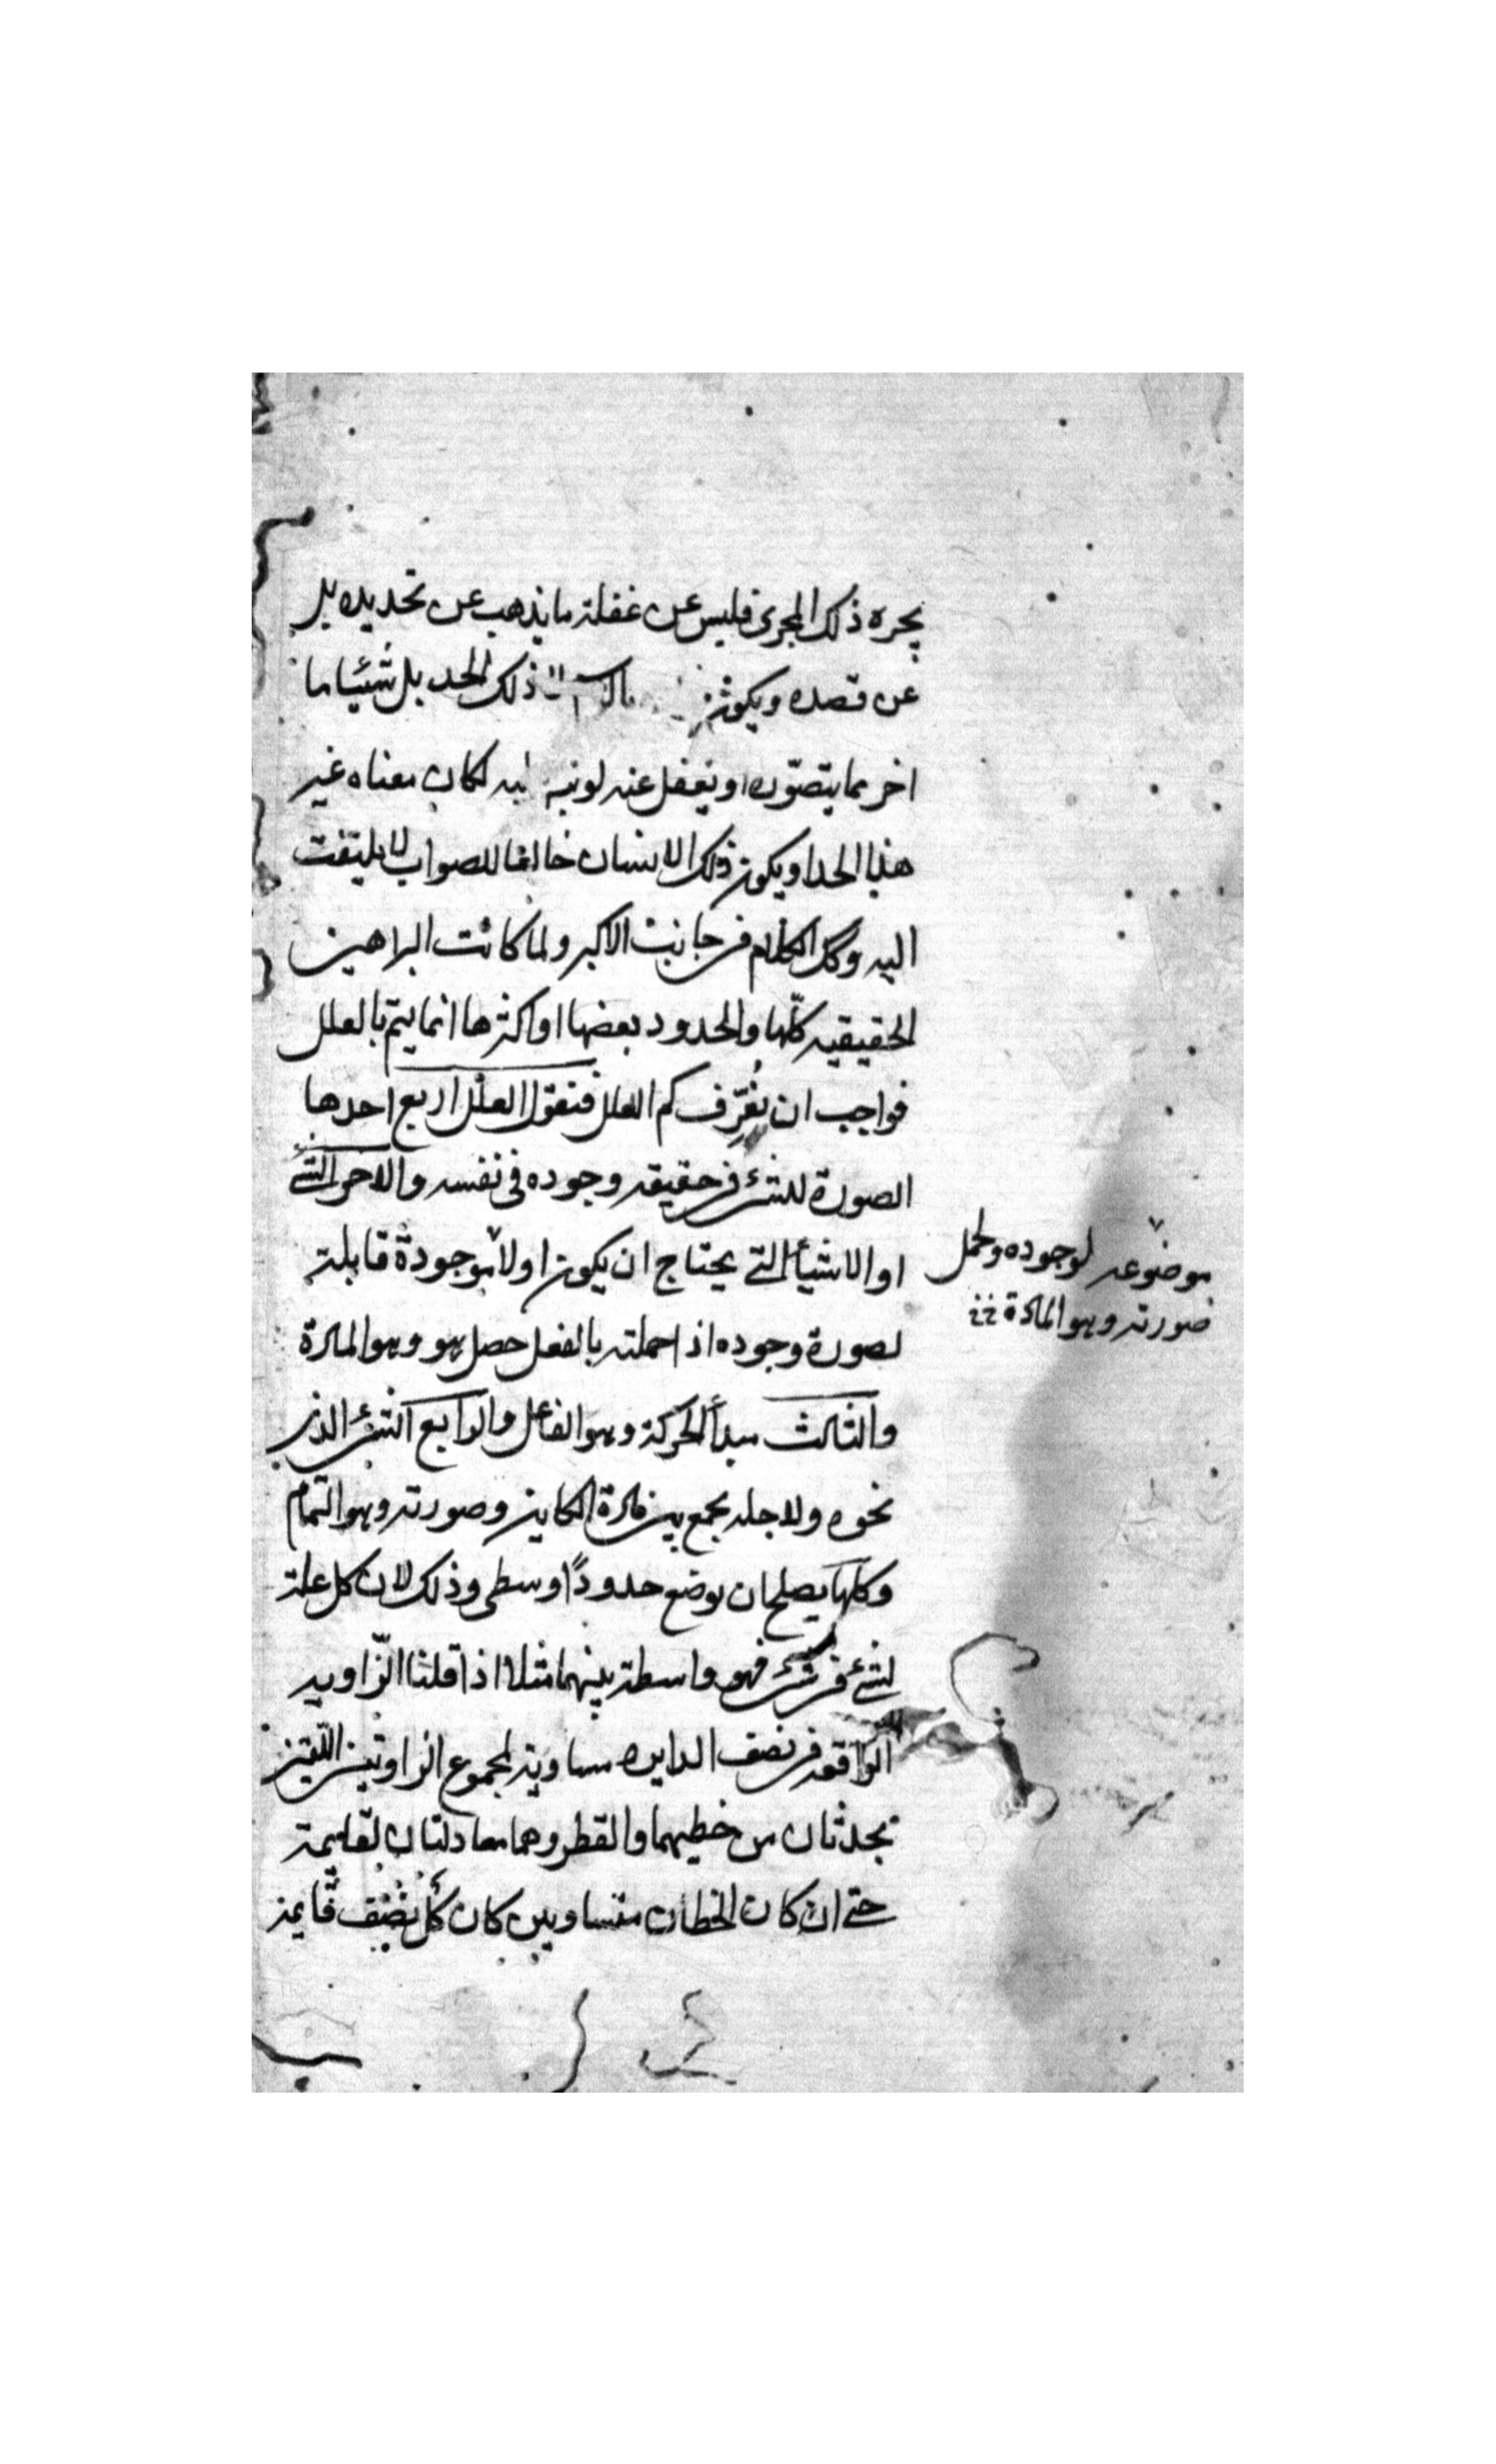 يجره ذلك المجرى فليس عن غفلة ما يذهب عن تحديده بل
عن قصده ويكون ذلك الحد بل شيئا ما
اخر مما يتصوره او يغفل عنه لو نبه لكان معناه غير
هذا الحد او يكون ذلك الانسان خالفا للصواب لا يلتفت
اليه وكل الكلام فى جانبت الاكبر ولما كانت البراهين
الحقيقيه كلّها والحدود بعضها او اكثرها انما يتم بالعلل
فواجب ان نُعَرِّف كم العلل فنقول العلل اربع احدها
الصورة للشئ فى حقيقه وجوده فى نفسه والاخر الشئ
او الاشيأ التى يحتاج ان يكون اولا موجودة قابلة
لصورة وجوده اذا حملته بالفعل حصل هو وهو المادة
والثالث مبدأ الحركة وهو الفاعل والرابع الشئ الذى
نحوه ولاجله يجمع بين مادة الكاين وصورته وهو التمام
وكلها يصلح ان يوضع حدودًا وسطى وذلك لان كل علة
لشئ فى شئ فهو واسطة بينهما مثلا اذا قلنا الزّاويه
الواقعه فى نصف الدايره مساوية لمجموع الزاوتين اللتين
تحدثان من خطيهما والقطر وهما معادلتان لقايمة
حتى ان كان الخطان متساويين كان كُلّ نصف قايمة
موضوعه لوجوده ولحمل
صورته وهو المادة